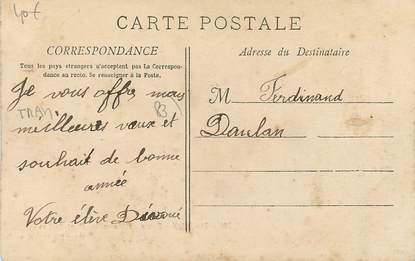 40 €
CARTE POSTALE
CORRESPONDANCE
Tous les pays étrangers n'acceptent pas La Correspon-
dance au recto. Se renseigner à la Poste.
Je vous offre mes
TRAN. 83
meilleures vœux et
souhait de bonne
année
Votre élève
Adresse du Destinataire
M Ferdinand
Daulan